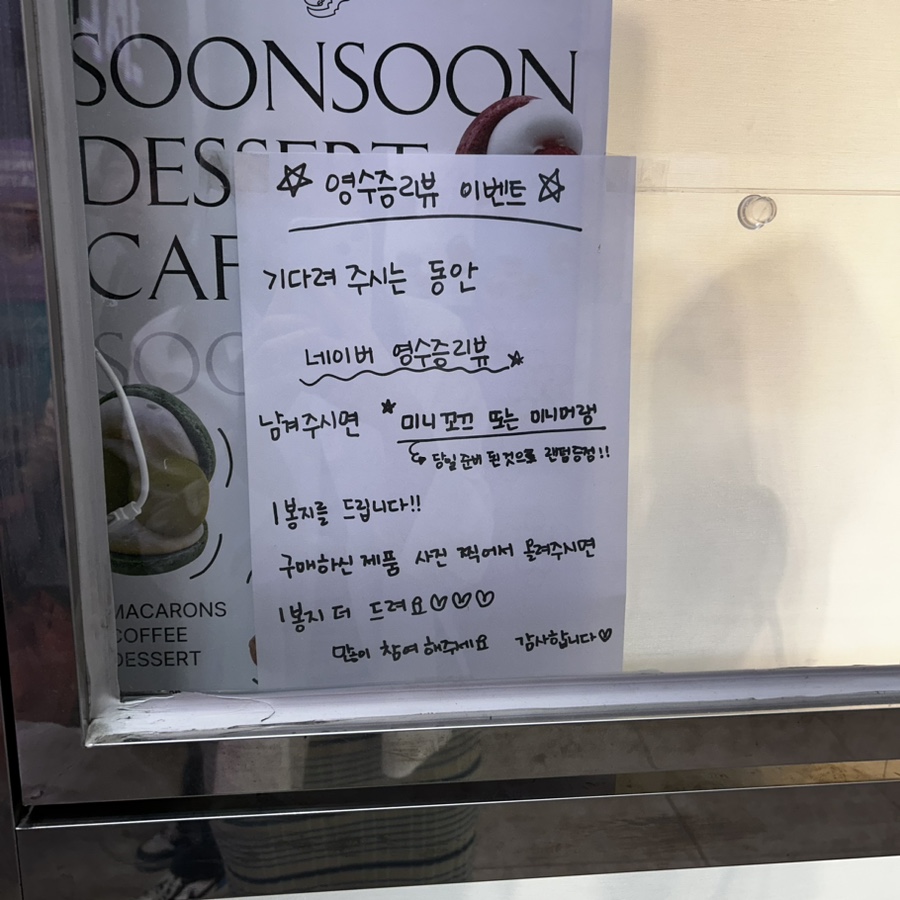 SOONSOON
DESSERT
CAF
SOO
☆ 영수증리뷰 이벤트 ☆
기다려 주시는 동안
네이버 영수증리뷰★
남겨주시면 ★ 미니꼬끄 또는 미니머랭
당일 준비 된것으로 랜덤증정!!
1봉지를 드립니다!!
구매하신 제품 사진 찍어서 올려주시면
1봉지 더 드려요♡♡♡
많이 참여해주세요 감사합니다♡
MACARONS
COFFEE
DESSERT